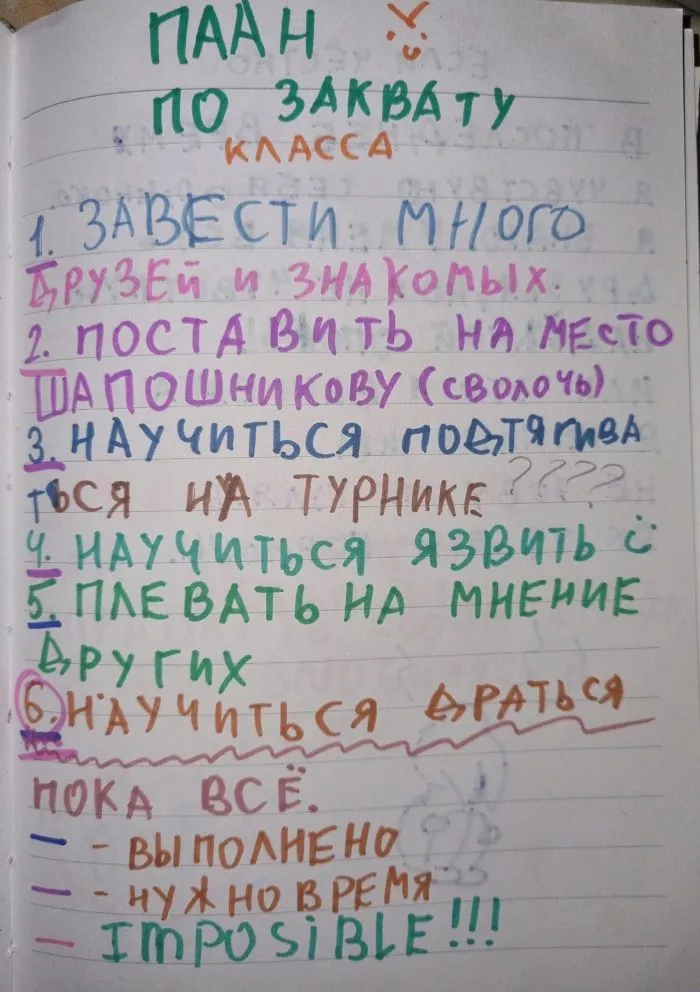 ПЛАН
ПО ЗАКВАТУ
КЛАССА
1. ЗАВЕСТИ МНОГО
ДРУЗЕЙ И ЗНАКОМЫХ.
2. ПОСТАВИТЬ НА МЕСТО
ШАПОШНИКОВУ (СВОЛОЧЬ)
3. НАУЧИТЬСЯ ПОДТЯГИВА
ТЬСЯ НА ТУРНИКЕ????
4. НАУЧИТЬСЯ ЯЗВИТЬ
5. ПЛЕВАТЬ НА МНЕНИЕ
ДРУГИХ
6. НАУЧИТЬСЯ ДРАТЬСЯ
ПОКА ВСЁ.
— - ВЫПОЛНЕНО
— - НУЖНО ВРЕМЯ
— IMPOSIBLE!!!